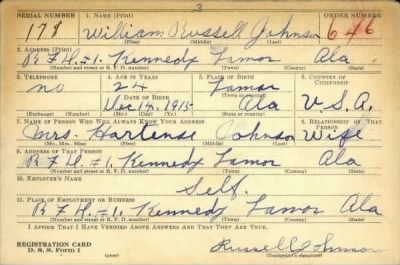 3
SERIAL NUMBER 1. NAME (Print) ORDER NUMBER
178 William Russell Johnson 646
(First) (Middle) (Last)
2. ADDRESS (Print)
R.F.D. #1. Kennedy Lamar Ala
(Number and street or R. F. D. number) (Town) (County) (State)
3. TELEPHONE 4. AGE IN YEARS 5. PLACE OF BIRTH 6. COUNTRY OF CITIZENSHIP
no 24 Lamar
DATE OF BIRTH
Dec 14, 1915 Ala U.S.A.
(Exchange) (Number) (Mo.) (Day) (Yr.) (State or country)
7. NAME OF PERSON WHO WILL ALWAYS KNOW YOUR ADDRESS 8. RELATIONSHIP OF THAT PERSON
Mrs. Hartense Johnson Wife
(Mr., Mrs., Miss) (First) (Middle) (Last)
9. ADDRESS OF THAT PERSON
R.F.D. #1. Kennedy Lamar Ala
(Number and street or R. F. D. number) (Town) (County) (State)
10. EMPLOYER'S NAME
Self.
11. PLACE OF EMPLOYMENT OR BUSINESS
R.F.D. #1. Kennedy Lamar Ala
(Number and street or R. F. D. number) (Town) (County) (State)
I AFFIRM THAT I HAVE VERIFIED ABOVE ANSWERS AND THAT THEY ARE TRUE.
REGISTRATION CARD
D. S. S. Form 1 (over) Russell Johnson
(Registrant's signature)